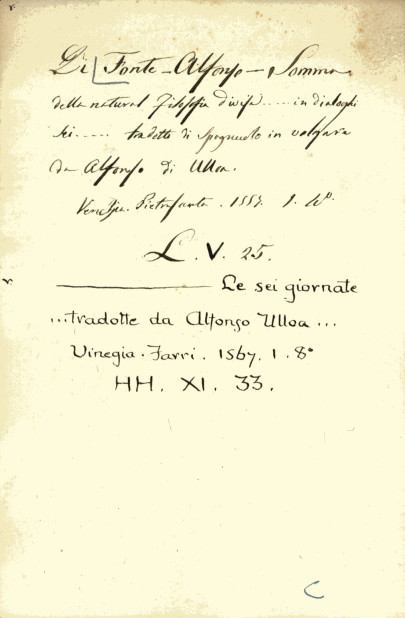 Di Fonte - Alfonso - Somma
della natural filosofia divisa ..... in dialoghi
sei ..... tradotti di Spagnuolo in volgare
da Alfonso di Ulloa.
Venezia. Pietrasanta. 1557. 1. 4º.
L. V. 25.
——— Le sei giornate
...tradotte da Alfonso Ulloa ...
Vinegia. Farri. 1567. 1. 8º
HH. XI. 33.
C